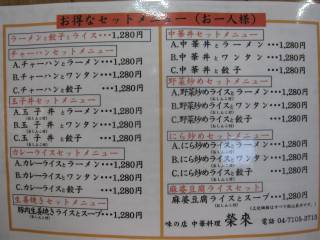 お得なセットメニュー(お一人様)
ラーメンと餃子とライス・・1,280円
チャーハンセットメニュー
A.チャーハンとラーメン・・・1,280円
B.チャーハンとワンタン・・・1,280円
C.チャーハンと餃子・・・1,280円
玉子丼セットメニュー
A.玉子丼とラーメン・・・1,280円
B.玉子丼とワンタン・・・1,280円
C.玉子丼と餃子・・・1,280円
カレーライスセットメニュー
A.カレーライスとラーメン・・・1,280円
B.カレーライスとワンタン・・・1,280円
C.カレーライスと餃子・・・1,280円
生姜焼きセットメニュー
豚肉生姜焼きライスとスープ・・・1,280円
中華丼セットメニュー
A.中華丼とラーメン・・・1,280円
B.中華丼とワンタン・・・1,280円
C.中華丼と餃子・・・1,280円
野菜炒めセットメニュー
A.野菜炒めライスとラーメン・・・1,280円
B.野菜炒めライスとワンタン・・・1,280円
C.野菜炒めライスと餃子・・・1,280円
にら炒めセットメニュー
A.にら炒めライスとラーメン・・・1,280円
B.にら炒めライスとワンタン・・・1,280円
C.にら炒めライスと餃子・・・1,280円
麻婆豆腐ライスセット
麻婆豆腐ライスとスープ・・・1,280円
味の店 中華料理 榮来 電話 04-7105-3713